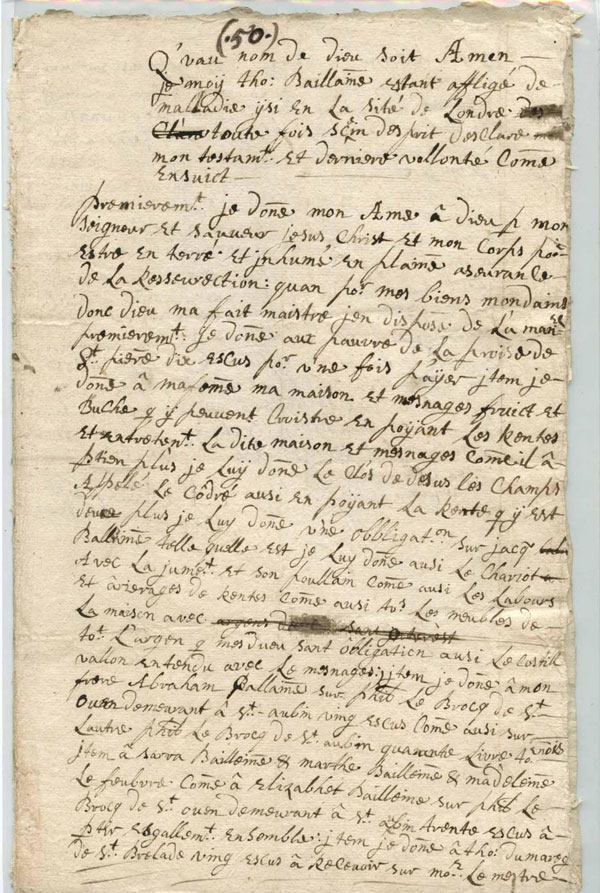 (.50.)
Q'vau nom de dieu soit Amen
je moÿ tho: Baillame estant affligé de
malladie ysi en La sité de Londre
toute fois sein desprit desclare
mon testamt. Et derniere vollonté Come
Ensuict
Premieremt. je done mon Ame â Dieu p mon
Seigneur Et Sauueur jesus Christ Et mon Corps por.
Estre En terré Et jnhumé En plaine aseurance
de La Ressurection: quan por. mes biens mondains
donc dieu ma fait maistre jen dispose de La mani
premieremt. je done aux pauure de La proise de
St. piere dix escus por. vne fois payer jtem je
done â ma feme ma maison et mesnages fruict et
Buche q y peuuent Croistre En poyant Les Rentes
Et Entretent. La dite maison et mesnages Come il â
ptien plus je Luy done Le Clos de desus Les Champs
Apelé Le Codré ausi En poyant La Rente q y Est
deue plus je Luy done vne obbligaton. sur jacq
Ballame telle quelle est je Luy done ausi Le Chariot
Avec La jumet. et son poullain Come ausi Les Labours
Et arierages de Rentes Come ausi tos. Les meubles de
La maison avec
tot. L'argen q mes deu sant obligation ausi Le Costill
vallon Entendu avec Le mesnages: jtem je done â mon
frere Abraham Ballame sur phlt Le Brocq de St.
Ouen demeurant â St. aubin ving Escus Come ausi sur
Lautre phlt Le Brocq de St. aubin quarante Livre to.
jtem â Sarra Baillaime & marthe Baillaime & madeleine
Le feubvre Come â Elizabhet Baillaime sur phlt Le
Brocq de St. ouen demeurant â St. aubin trente Escus â
ptir Esgallemt. Ensemble: jtem je done â tho: dumaresq
de St. Brelade ving escus â Recevoir sur mor. Le mestre